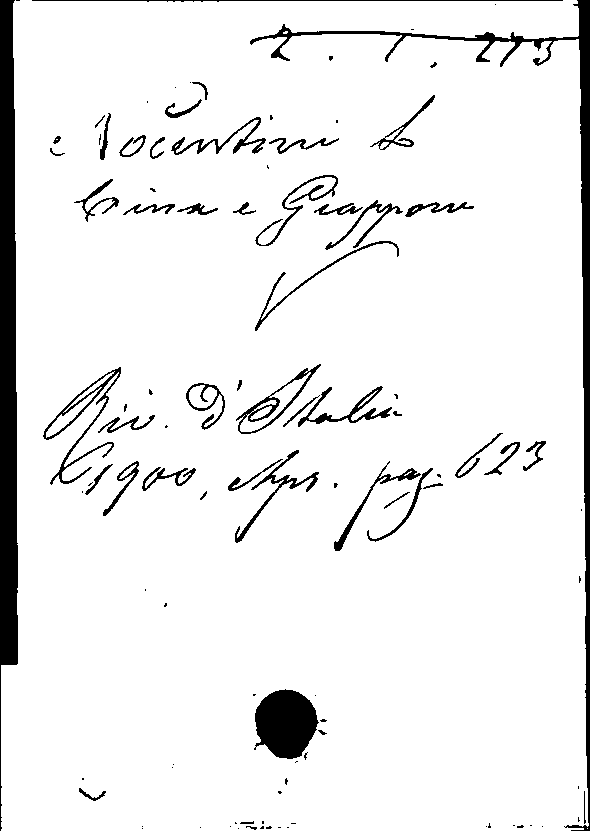 2. 1. 273
Nocentini L
Cina e Giappone
Riv. d'Italia
1900, Apr. pag. 623